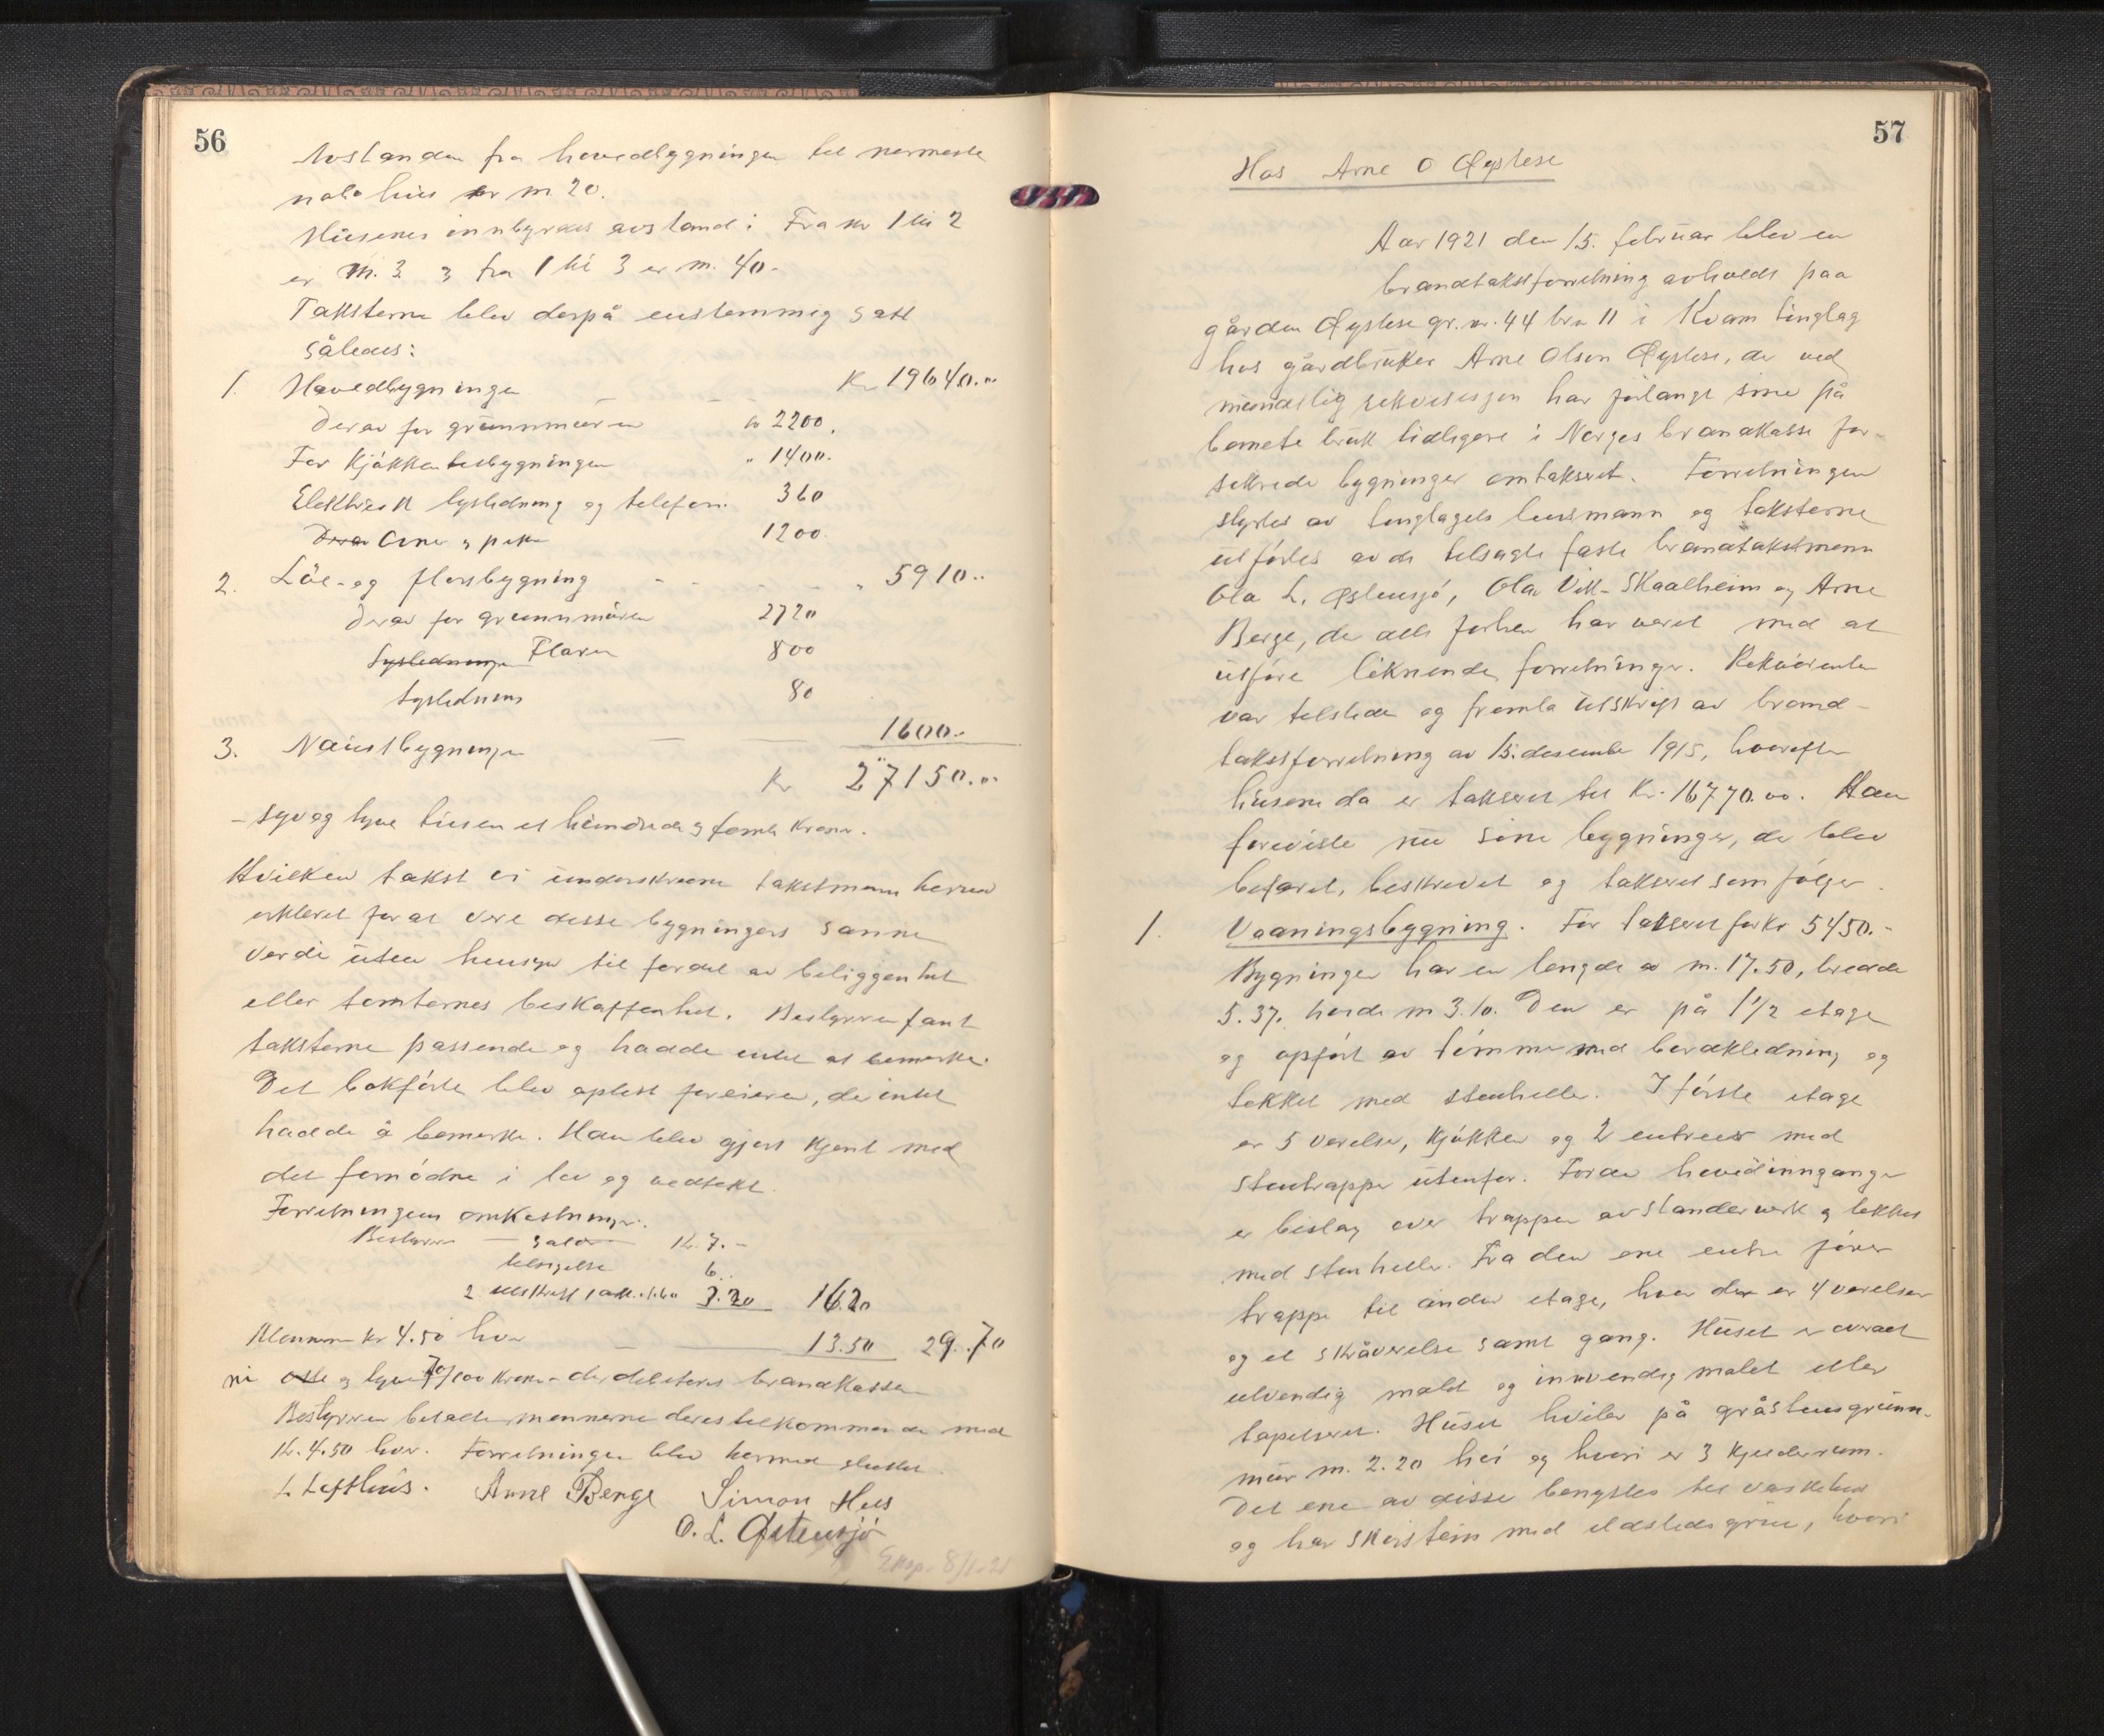 56
Avstanden fra hovedbygningen til nermeste
nabohus er m 20.
Husenes innbyrdes avstand: Fra nr 1 til 2
er m. 3 og fra 1 til 3 er m. 40.-
Taksterne blev derpå enstemmig satt
således:
1. Hovedbygningen Kr 19640.00
Derav for grunnmuren kr 2200.
For Kjøkkentilbygningen " 1400.
Elektrisk lysledning og telefon. 360
Derav Ovner og piper 1200.
2. Løe- og florsbygning - - - " 5910..
Derav for grunnmuren 2720
Lysledningen Floren 800
Lysledning 80
3. Naustbygningen 1600..
Kr 27150.00
- syv og tyve tusen et hundrede og femti Kroner.
Hvilken takst vi underskrevne takstmenn herved
erklerer for at vere disse bygningers sanne
verdi uten hensyn til fordel av beliggenhet
eller tomternes beskaffenhet. Bestyreren fant
taksterne passende og hadde intet at bemerke.
Det bokførte blev oplest for eieren, der intet
hadde å bemerke. Han blev gjort kjent med
det fornødne i lov og vedtekt.
Forretningens omkostninger:
Bestyreren - salær Kr. 7. -
tilsigelse 6..
2 utskrift 1.60 3.20 16.20
Mennene kr 4.50 hver 13.50 29.70
ni otte og tyve 70/100 kroner - der debiteres brandkassen
Bestyreren betalte mennerne deres tilkommende med
Kr. 4.50 hver. Forretningen blev hermed sluttet.
L Lofthus. Arne Berge Simon Hus
O. L. Østensjö
Eksp. 8/1.21
57
Hos Arne O Øystese
Aar 1921 den 15. februar blev en
brandtakstforretning avholdt paa
gården Øystese gr. nr. 44 br nr 11 i Kvam tinglag
hos gårdbruker Arne Olson Øystese, der ved
mundtlig rekvisisjon har forlangt sine på
bemelte bruk tidligere i Norges brandkasse for-
sikrede bygninger omtaksert. Forretningen
styrtes av tinglagets lensmann og taksterne
utførtes av de tilsagte faste brandtakstmenn
Ola L. Østensjø, Olav Vik-Skaalheim og Arne
Berge, der alle forhen har veret med at
utføre liknende forretninger. Rekvirenten
var tilstede og fremla utskrift av brand-
takstforretning av 15. desember 1915, hvorefter
husene da er taksert til Kr. 16770.00. Han
foreviste nu sine bygninger, der blev
befaret, beskrevet og taksert som følger.
1. Vaaningsbygning. Før taksert for kr 5450.-
Bygningen har en lengde av m. 17.50, bredde
5.37, høide m 3.10. Den er på 1 1/2 etage
og opført av tømmer med bordkledning og
tekket med stenheller. I første etage
er 5 verelser, kjøkken og 2 entreer med
stentrapper utenfor. Foran hovedinngangen
er bislag over trappen av standerverk og tekket
med stenheller. Fra den ene entre fører
trappe til anden etage, hvor der er 4 verelser
og et skråverelse samt gang. Huset er overalt
utvendig malet og innvendig malet eller
tapetseret. Huset hviler på gråstensgrunn-
mur m. 2.20 høi og hvori er 3 kjellerrum.
Det ene av disse benyttes til vaskehus
og har skorstein med ildstedsgrue, hvori